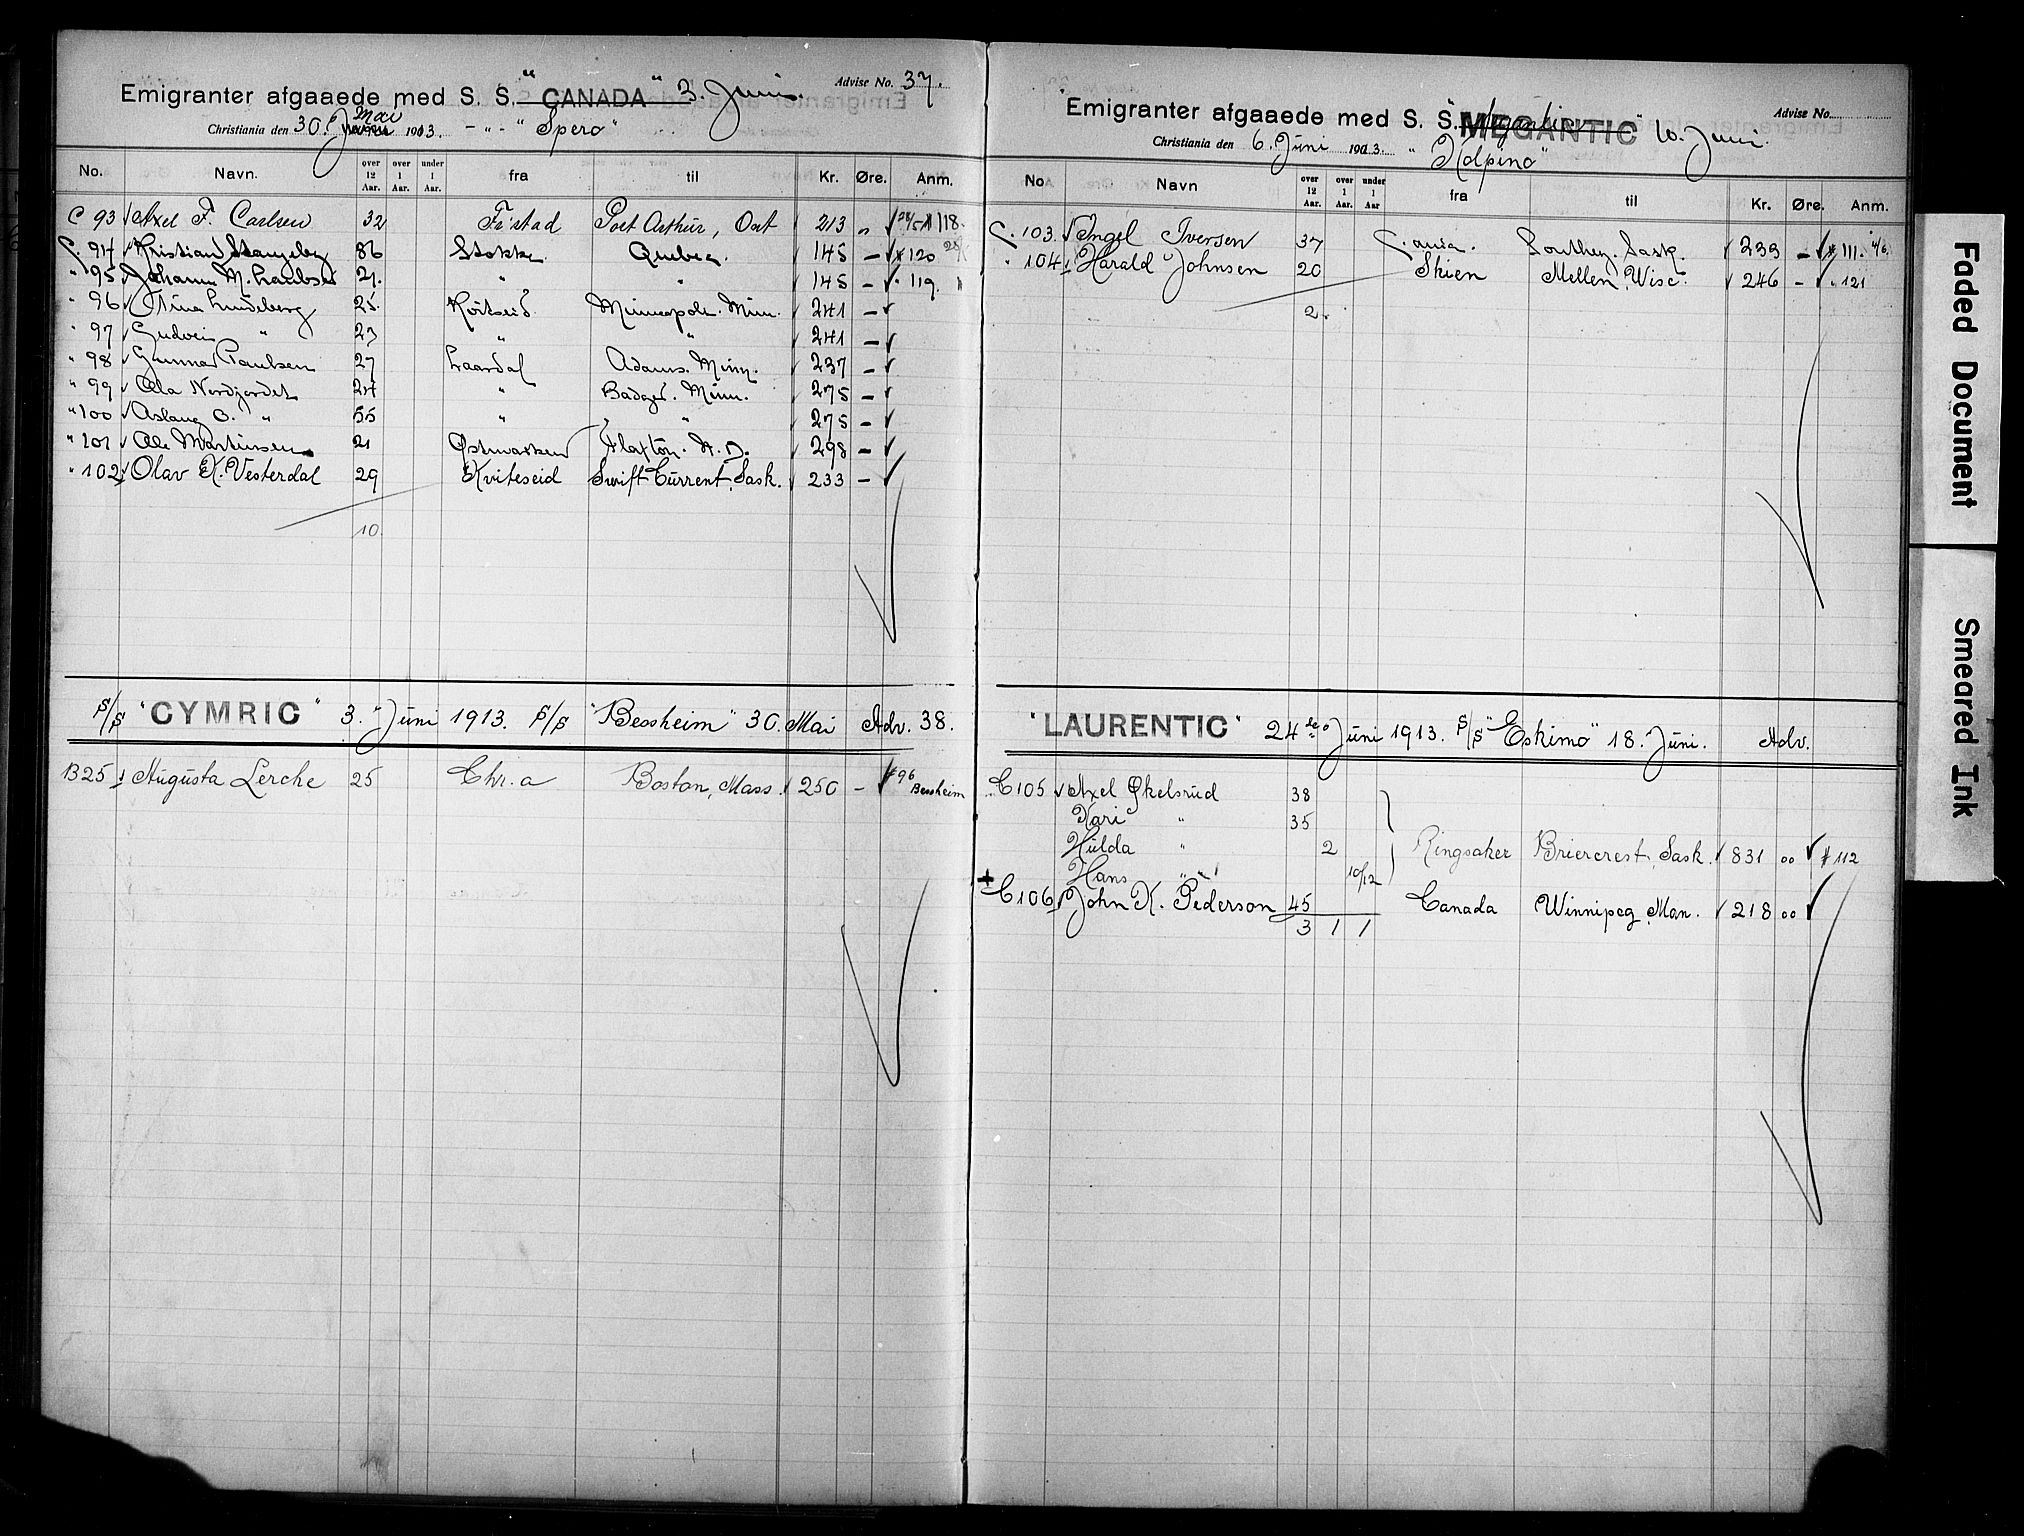 Advise No. 37.
Emigranter afgaaede med S. S. "CANADA" 3. Juni.
Christiania den 30. Mai 1913. - " - "Spero"
No. Navn. over 12 Aar. over 1 Aar. under 1 Aar. fra til Kr. Øre. Anm.
C 93 Axel F. Carlsen 32 F.stad Port Arthur, Ont 213 " 118.
C. 94 Kristian 86 Stokke Quebec 145 - # 120
" 95 Johann M. 21. " " 145 - " 119. "
" 96 Stina Lindeberg 25. Minneapolis. Minn. 241 -
" 97 " 23 " " 241 -
" 98 Gunnar Paulsen 27 Laardal Adams. Minn. 237 -
" 99 Ola 24 " Badger. Minn. 275 -
" 100 Aslaug O. " 55 " " 275 -
" 101 Ole Martinsen 21 Flaxton. N. D. 298 -
" 102 Olav K. Vesterdal 29 Kviteseid Swift Current, Sask. 233 -
10.
S/S "CYMRIC" 3. Juni 1913. S/S "Bessheim" 30. Mai Adv. 38.
B25 Augusta Lerche 25 Chr.a Boston, Mass. 250 - # 96 Bessheim
Advise No.
Emigranter afgaaede med S. S. "MEGANTIC" 10. Juni.
Christiania den 6. Juni 1913. "Kolpino"
No Navn over 12 Aar. over 1 Aar. under 1 Aar fra til Kr. Øre. Anm.
C. 103. Ingel Iversen 37 C.ania. Southey. Sask. 233 - # 111.
" 104 Harald Johnsen 20 Skien Mellen, Wisc. 246 - " 121
2.
"LAURENTIC" 24de Juni 1913. S/S "Eskimo" 18. Juni. Adv.
C105 Axel Økelsrud 38
Kari " 35
Hulda " 2 Ringsaker Briercrest, Sask. 831 00 # 112
Hans " 10/12
+ C106 John K. Pederson 45 Canada Winnipeg, Man. 218 00
3 1 1
Faded Document
Smeared Ink